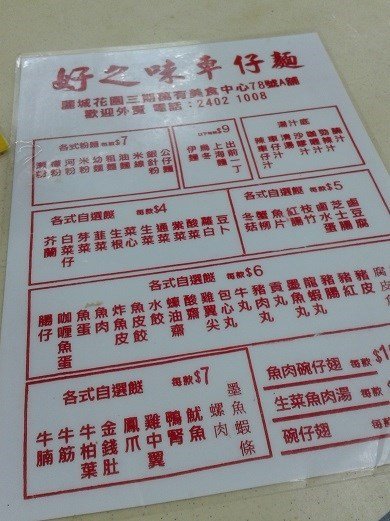 好之味車仔麵
麗城花園三期萬有美食中心78號A舖
歡迎外賣 電話：2402 1008
各式粉麵 每款$7
瀨粉
河粉
米粉
幼麵
粗麵
油麵
米線
銀針粉
公仔麵
$9
伊麵
烏冬
上海麵
出前一丁
湯汁底
$5
車仔汁
清湯
各式自選餸 每款$4
芥蘭
白菜仔
芽菜
韭菜
生根
菜心
生菜
通菜
紫菜
酸菜
蘿白
豆卜
各式自選餸 每款$5
冬菇
蟹柳
魚片
紅腸
枝竹
鹵水蛋
芝士腸
各式自選餸 每款$6
腸仔
咖喱魚蛋
魚蛋
魚肉
炸魚皮
魚皮餃
水餃
蠔油齋
酸齋
雞翼尖
包心丸
牛丸
豬肉丸
貢丸
墨魚丸
龍蝦丸
豬腸
豬紅
豬皮
腐皮
各式自選餸 每款$7
牛腩
牛筋
牛柏葉
金錢肚
鳳爪
雞中翼
鴨腎
魷魚
螺肉
墨魚蝦條
魚肉碗仔翅 每款
生菜魚肉湯 每款
碗仔翅 每款